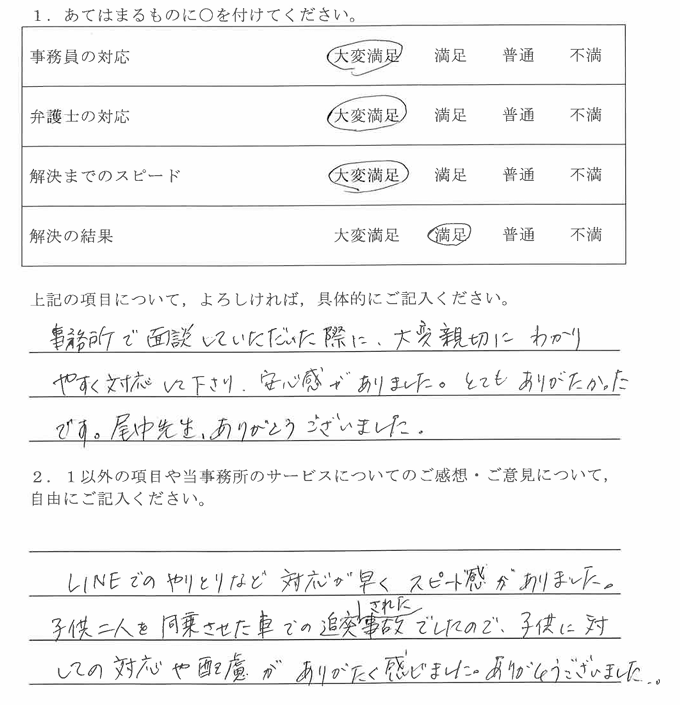 1．あてはまるものに○を付けてください。
事務員の対応 大変満足 満足 普通 不満
弁護士の対応 大変満足 満足 普通 不満
解決までのスピード 大変満足 満足 普通 不満
解決の結果 大変満足 満足 普通 不満
上記の項目について，よろしければ，具体的にご記入ください。
事務所で面談していただいた際に、大変親切にわかり
やすく対応して下さり、安心感がありました。とてもありがたかった
です。尾中先生、ありがとうございました。
2．1以外の項目や当事務所のサービスについてのご感想・ご意見について，
自由にご記入ください。
LINEでのやりとりなど対応が早くスピード感がありました。
子供二人を同乗させた車での追突された事故でしたので、子供に対
しての対応や配慮がありがたく感じました。ありがとうございました。